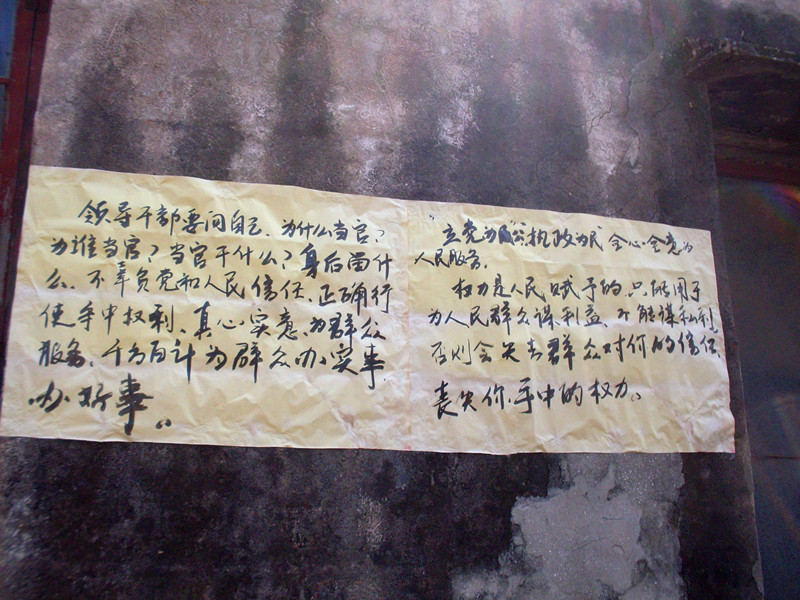 领导干部要问自己、为什么当官?
为谁当官?当官干什么?身后留什
么、不辜负党和人民信任、正确行
使手中权利、真心实意、为群众
服务、千方百计为群众办实事
办好事。
"立党为公执政为民 全心全意为
人民服务。
权力是人民赋予的、只能用于
为人民群众谋利益、不能谋私利
否则会失去群众对你的信任、
丧失你手中的权力。